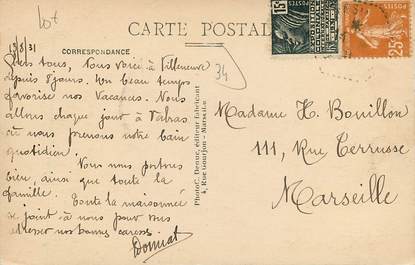 lot
CARTE POSTALE
13/8/31
CORRESPONDANCE
Chers tous, Nous voici à Villeneuve
depuis 8 jours. Un beau temps
favorise nos Vacances. Nous
allons chaque jour à Valras
où nous prenons notre bain
quotidien.
Nous nous portons
bien, ainsi que toute la
famille. Toute la maisonnée
se joint à nous pour vous
adresser nos bonnes caresses.
34
PhotoC. Deroue, éditeur fabricant
4, Rue Gourjon - Marseille
15c
25c
Madame H. Bouillon
111, Rue Terrusse
Marseille